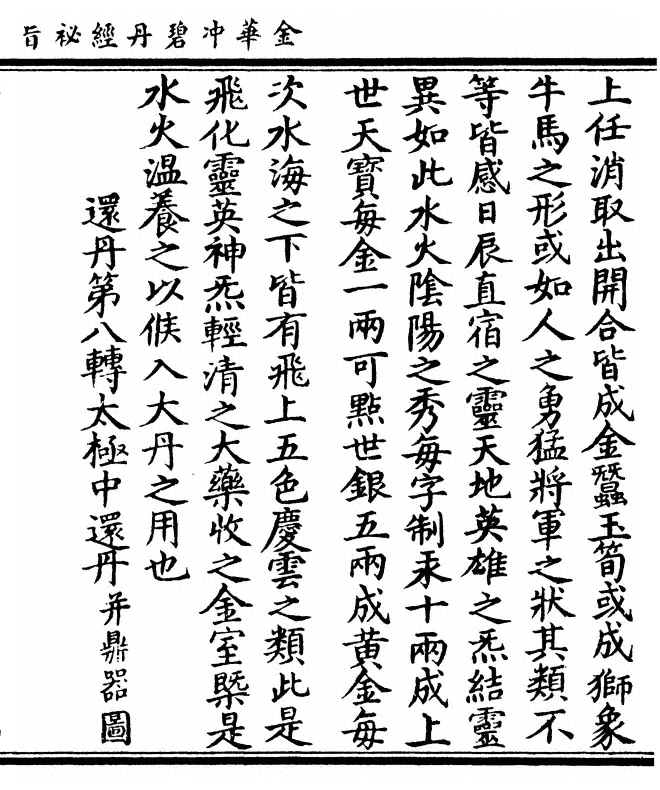 金華冲碧丹經祕旨
上任消取出開合皆成金蠶玉筍或成獅象
牛馬之形或如人之勇猛將軍之狀其類不
等皆感日辰直宿之靈天地英雄之炁結靈
異如此水火陰陽之秀每字制汞十兩成上
世天寶每金一兩可點世銀五兩成黃金每
次水海之下皆有飛上五色慶雲之類此是
飛化靈英神炁輕清之大藥收之金室槩是
水火温養之以候入大丹之用也
還丹第八轉太極中還丹并鼎器圖